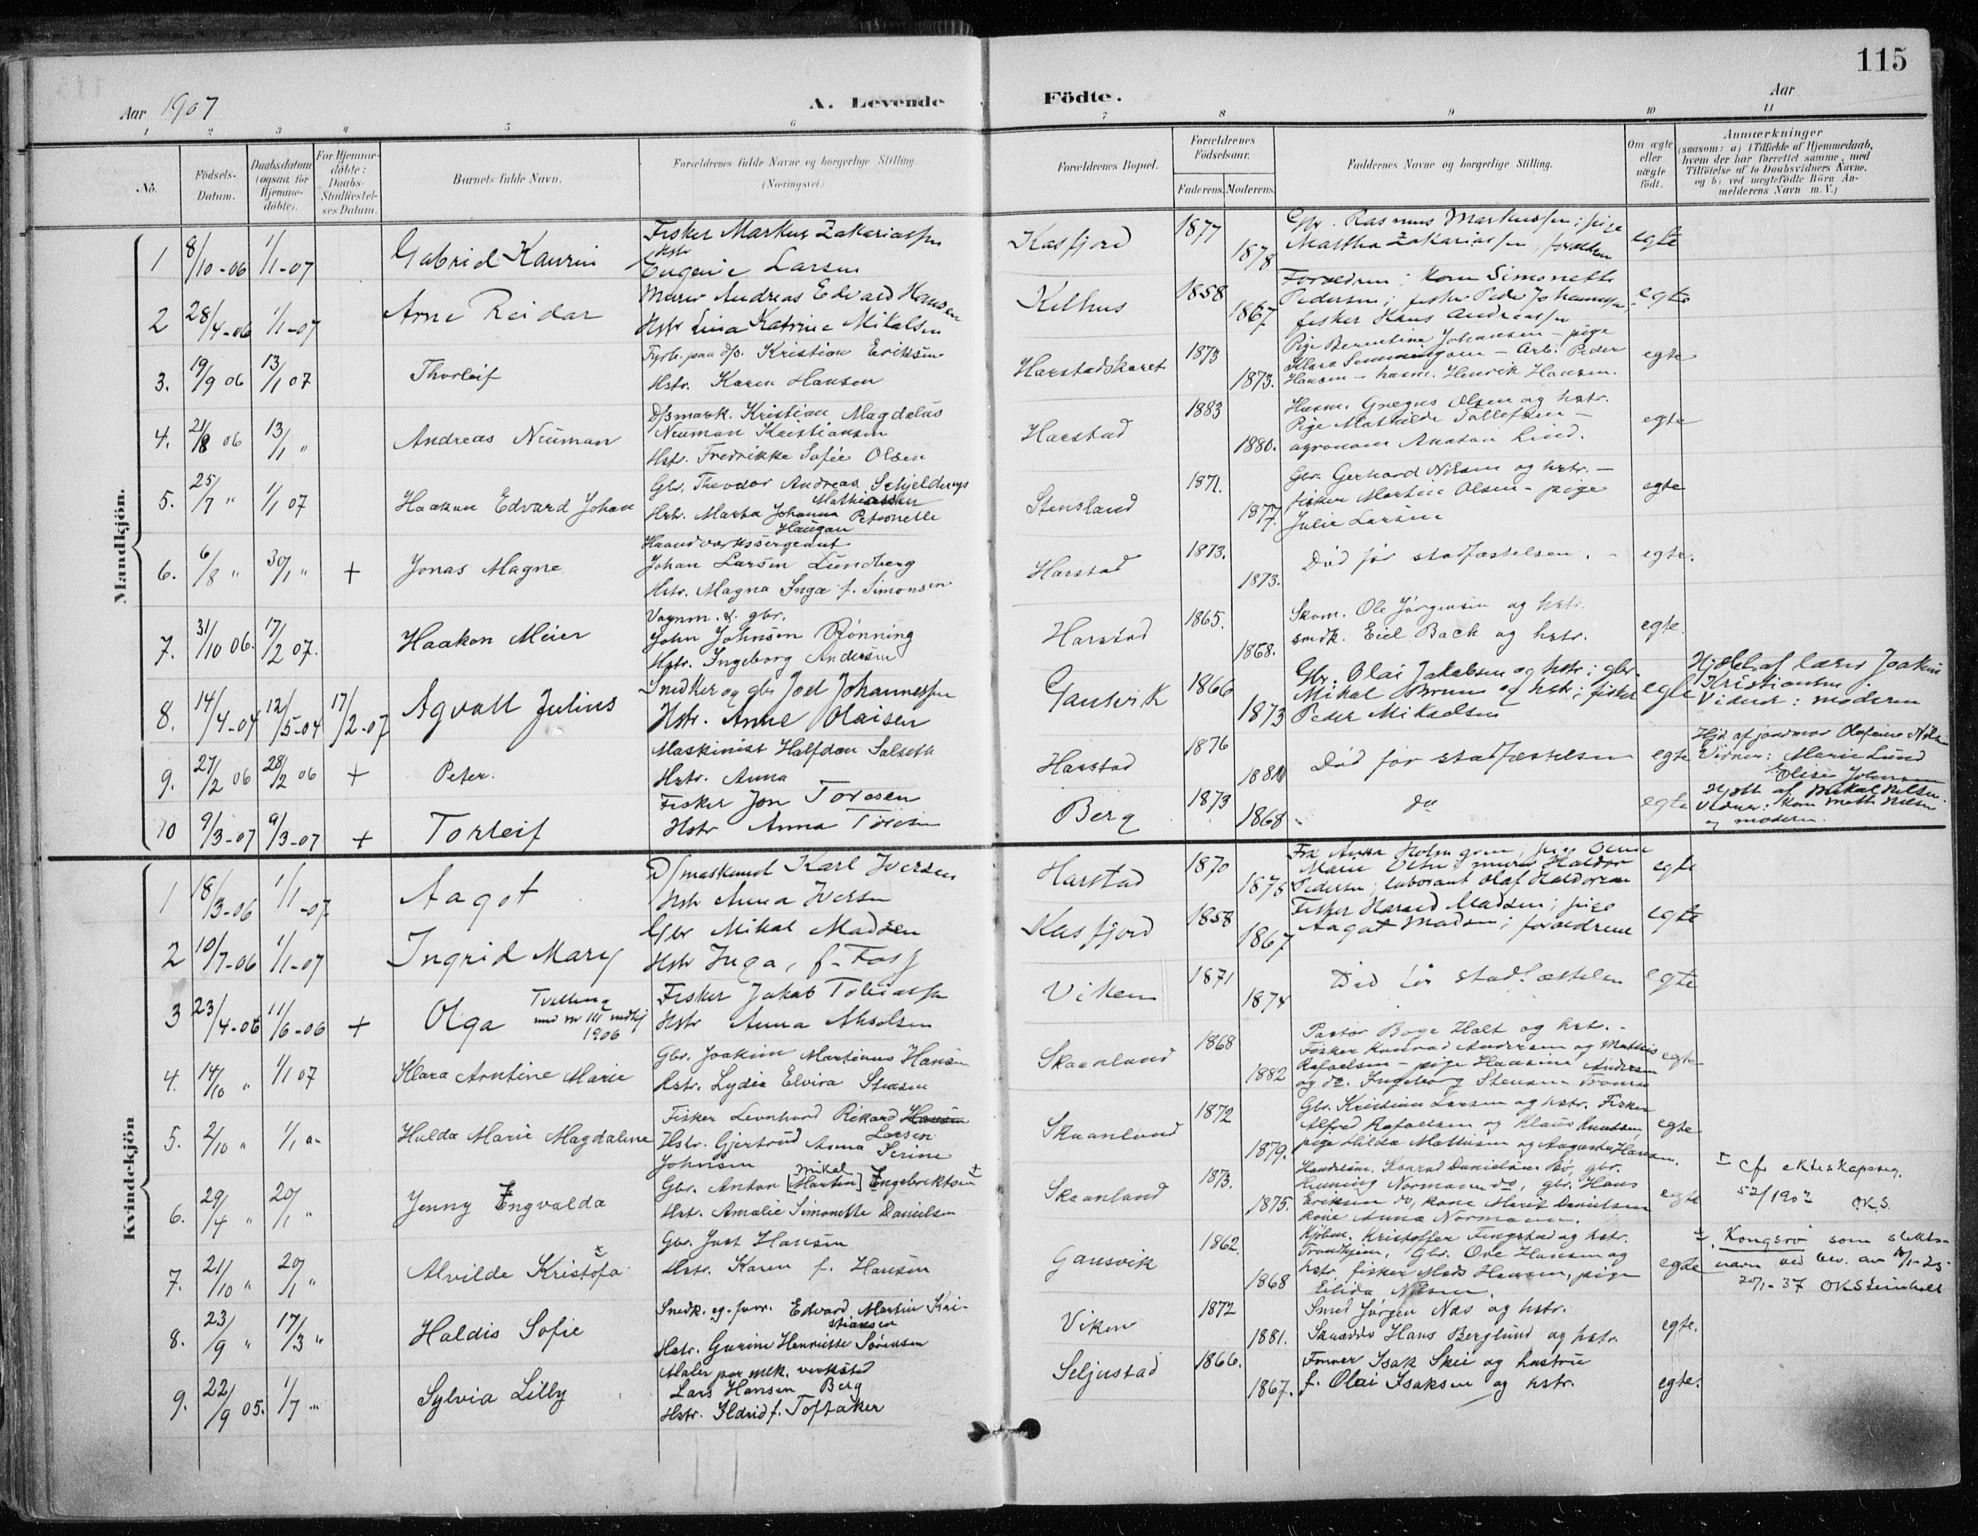 115
Aar 1907
A. Levende Födte.
Aar
1 2 3 4 5 6 7 8 9 10 11
No.
Födsels-Datum.
Daabsdatum (ogsaa for Hjemme-döbte).
For Hjemme-döbte: Daabs-Stadfæstel-ses Datum.
Barnets fulde Navn.
Forældrenes fulde Navne og borgerlige Stilling.
(Næringsvei.)
Forældrenes Bopæl.
Forældrenes Födselsaar.
Faderens. Moderens.
Faddernes Navne og borgerlige Stilling.
Om ægte eller uægte født.
Anmærkninger
(saasom: a) i Tilfælde af Hjemmedaab, hvem der har forrettet samme, med Tilföielse af to Daabsvidners Navne, og b) ved uægtefödte Börn An-melderens Navn m. V.)
Mandkjön.
1 8/10-06 1/1-07 Gabriel Kaurin Fisker Markus Zakariassen Hstr Eugenie Larsen Kasfjord 1877 1878 Gbr. Rasmus Markussen; pige Martha Zakariassen, forældrene egte
2 28/4-06 1/1-07 Arne Reidar Murer Andreas Edvard Hansen Hstr Lina Katrine Mikalsen Kilhus 1858 1867 Forældrene; kone Simonette Pedersen; fisker Peder Johannessen, fisker Hans Andreassen egte
3. 19/9 06 13/1 07 Thorleif Fyrb. paa d/s. Kristian Eriksen Hstr. Karen Hansen Harstadskaret 1873 1873. Pige Berntine Johansen - pige Klara - Arb. Peder Hansen - husm. Henrik Hansen. egte
4. 21/8 06 13/1 " Andreas Neuman D/smask. Kristian Magdalus Neuman Kristiansen Hstr. Fredrikke Sofie Olsen Harstad 1883 1880. Husm. Gregus Olsen og hstr. Pige Mathilde Tollefsen - agronom Anaton Lind. egte
5. 25/7 " 1/1 07 Haakon Edvard Johan Gbr. Theodor Andreas Schjelderup Mathiassen Hstr. Marta Johanna Petronelle Haugan Stensland 1871. 1877. Gbr. Gerhard Nilsen og hstr. - fisker Martin Olsen - pige Julie Larsen egte
6. 6/8 " 30/1 " + Jonas Magne Haandverkssergeant Johan Larsen Lundberg Hstr. Magna Inga f. Simonsen Harstad 1873. 1873. Död før stadfæstelsen. - egte.
7. 31/10 06. 17/2 07. Haakon Meier Vognm. & gbr. John Johnsen Rønning Hstr. Ingeborg Andersen Harstad 1865. 1868. Skom. Ole Jørgensen og hstr. smdk. Eiel Bach og hstr. egte.
8. 14/4-04 12/5-04 17/2-07 Agvall Julius Snedker og gbr Joel Johannessen Hstr. Anne Olaisen Gausvik 1866 1873 Gbr. Olai Jakobsen og hstr; gbr. Mikal Bruun og hstr; fisker Peder Mikaelsen egte Hjdbt af lærer Joakim Kristiansen. Vidner: moderen
9. 27/2 06 28/2 06 + Peter. Maskinist Halfdan Salseth Hstr. Anna Harstad 1876 Död før stadfæstelsen egte Hjd af jordmor Olefine Nilsen Vidner: Marie Lund Elise Johansen
10 9/3-07 9/3-07 + Torleif Fisker Jon Toresen Hstr Anna Toresen Berg 1873 1868 do egte Hjdbt af Mikal Nilsen. Vidner: kone Meth Nilsen og moderen.
Kvindekjön
1 18/3-06 1/1-07 Aagot D/smaskinist Karl Iversen Hstr Anna Iversen Harstad 1870 1875 Frk Anna Holmgren; pige Olene Marie Olsen; murer Haldor Pedersen; laborant Olaf Haldorsen egte
2 10/7-06 1/1-07 Ingrid Mary Gbr Mikal Madsen Hstr Inga, f. Foss Kasfjord 1858 1867 Fisker Harald Madsen; pige Aagot Madsen; forældrene egte
3 23/4-06 11/6-06 + Olga Tvilling med nr 111 mdkj 1906 Fisker Jakob Tobiassen Hstr Anna Akselsen Viken 1871 1874 Död før stadfæstelsen egte
4. 14/10 " 1/1 07 Klara Arntine Marie Gbr. Joakim Martinus Hansen Hstr. Lydia Elvira Stensen Skaanland 1868 1882 Pastor Boye Holt og hstr. - Fisker Konrad Andersen og Mathis Rafaelsen - pige Haasine Andersen og do. Ingeborg Stensen Tromsø egte
5. 2/10 " 1/1 " Hulda Marie Magdalene Fisker Leonhard Rikard Hansen Larsen Hstr. Gjertrud Anna Serine Johnsen Skaanland 1872 1879. Gbr. Kristian Larsen og hstr. Fisker Alfred Rafaelsen og Klaus Knudsen, pige Hilda Mathisen og Augusta Hansen. egte
6. 29/4 " 20/1 " Jenny Engvalda Gbr. Anton [Martin] Mikal Engebriktsen Hstr. Amalie Simonette Danielsen Skaanland 1873. 1875. Handelsm. Konrad Danielsen Bø, gbr. Henning Normann do, gbr. Hans Eriksen do, kone Marit Danielsen kone Anna Normann. egte x cfr. ekteskapsreg. 52/1902 OKS.
7. 21/10 " 20/1 " Alvilde Kristofa Gbr. Just Hansen Hstr. Karen f. Hansen Gausvik 1862. 1868 Kjøbm. Kristoffer Fingstad og hstr. Trondhjem, Gbr. Ove Hansen og hstr. fisker Mads Hansen, pige Elida Nilsen. egte Kongsrø som slekts-navn ved bev. av 20/1-37 OKSteinholt
8. 23/9 " 17/3 " Haldis Sofie Snedk. og forr. Edvard Martin Kristiansen Hstr. Gurine Henriette Sørensen Viken 1872 1881. Smed Jørgen Nas og hstr. Hans Berglund og hstr. egte.
9. 22/9 05. 1/7 " Sylvia Lilly Maler paa mek. verksted Lars Hansen Berg Hstr. Ildrid f. Toftaker Seljestad 1866. 1867. Former Isak Skei og hustrue f. Olai Isaksen og hstr. egte.